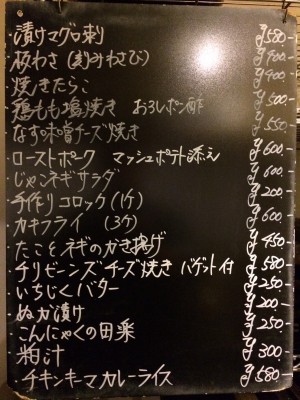 漬けマグロ刺 ¥580-
板わさ (刻みわさび) ¥400-
焼きたらこ ¥400-
鶏もも塩焼き おろしポン酢 ¥500-
なす味噌チーズ焼き ¥550-
ローストポーク マッシュポテト添え ¥600-
じゃこネギサラダ ¥600-
手作りコロッケ(1ケ) ¥200-
カキフライ (3ケ) ¥600-
たことネギのかき揚げ ¥450-
チリビーンズチーズ焼き バゲット付 ¥580
いちじくバター ¥250
ぬか漬け ¥200-
こんにゃくの田楽 ¥250
粕汁 ¥300-
チキンキーマカレーライス ¥580-